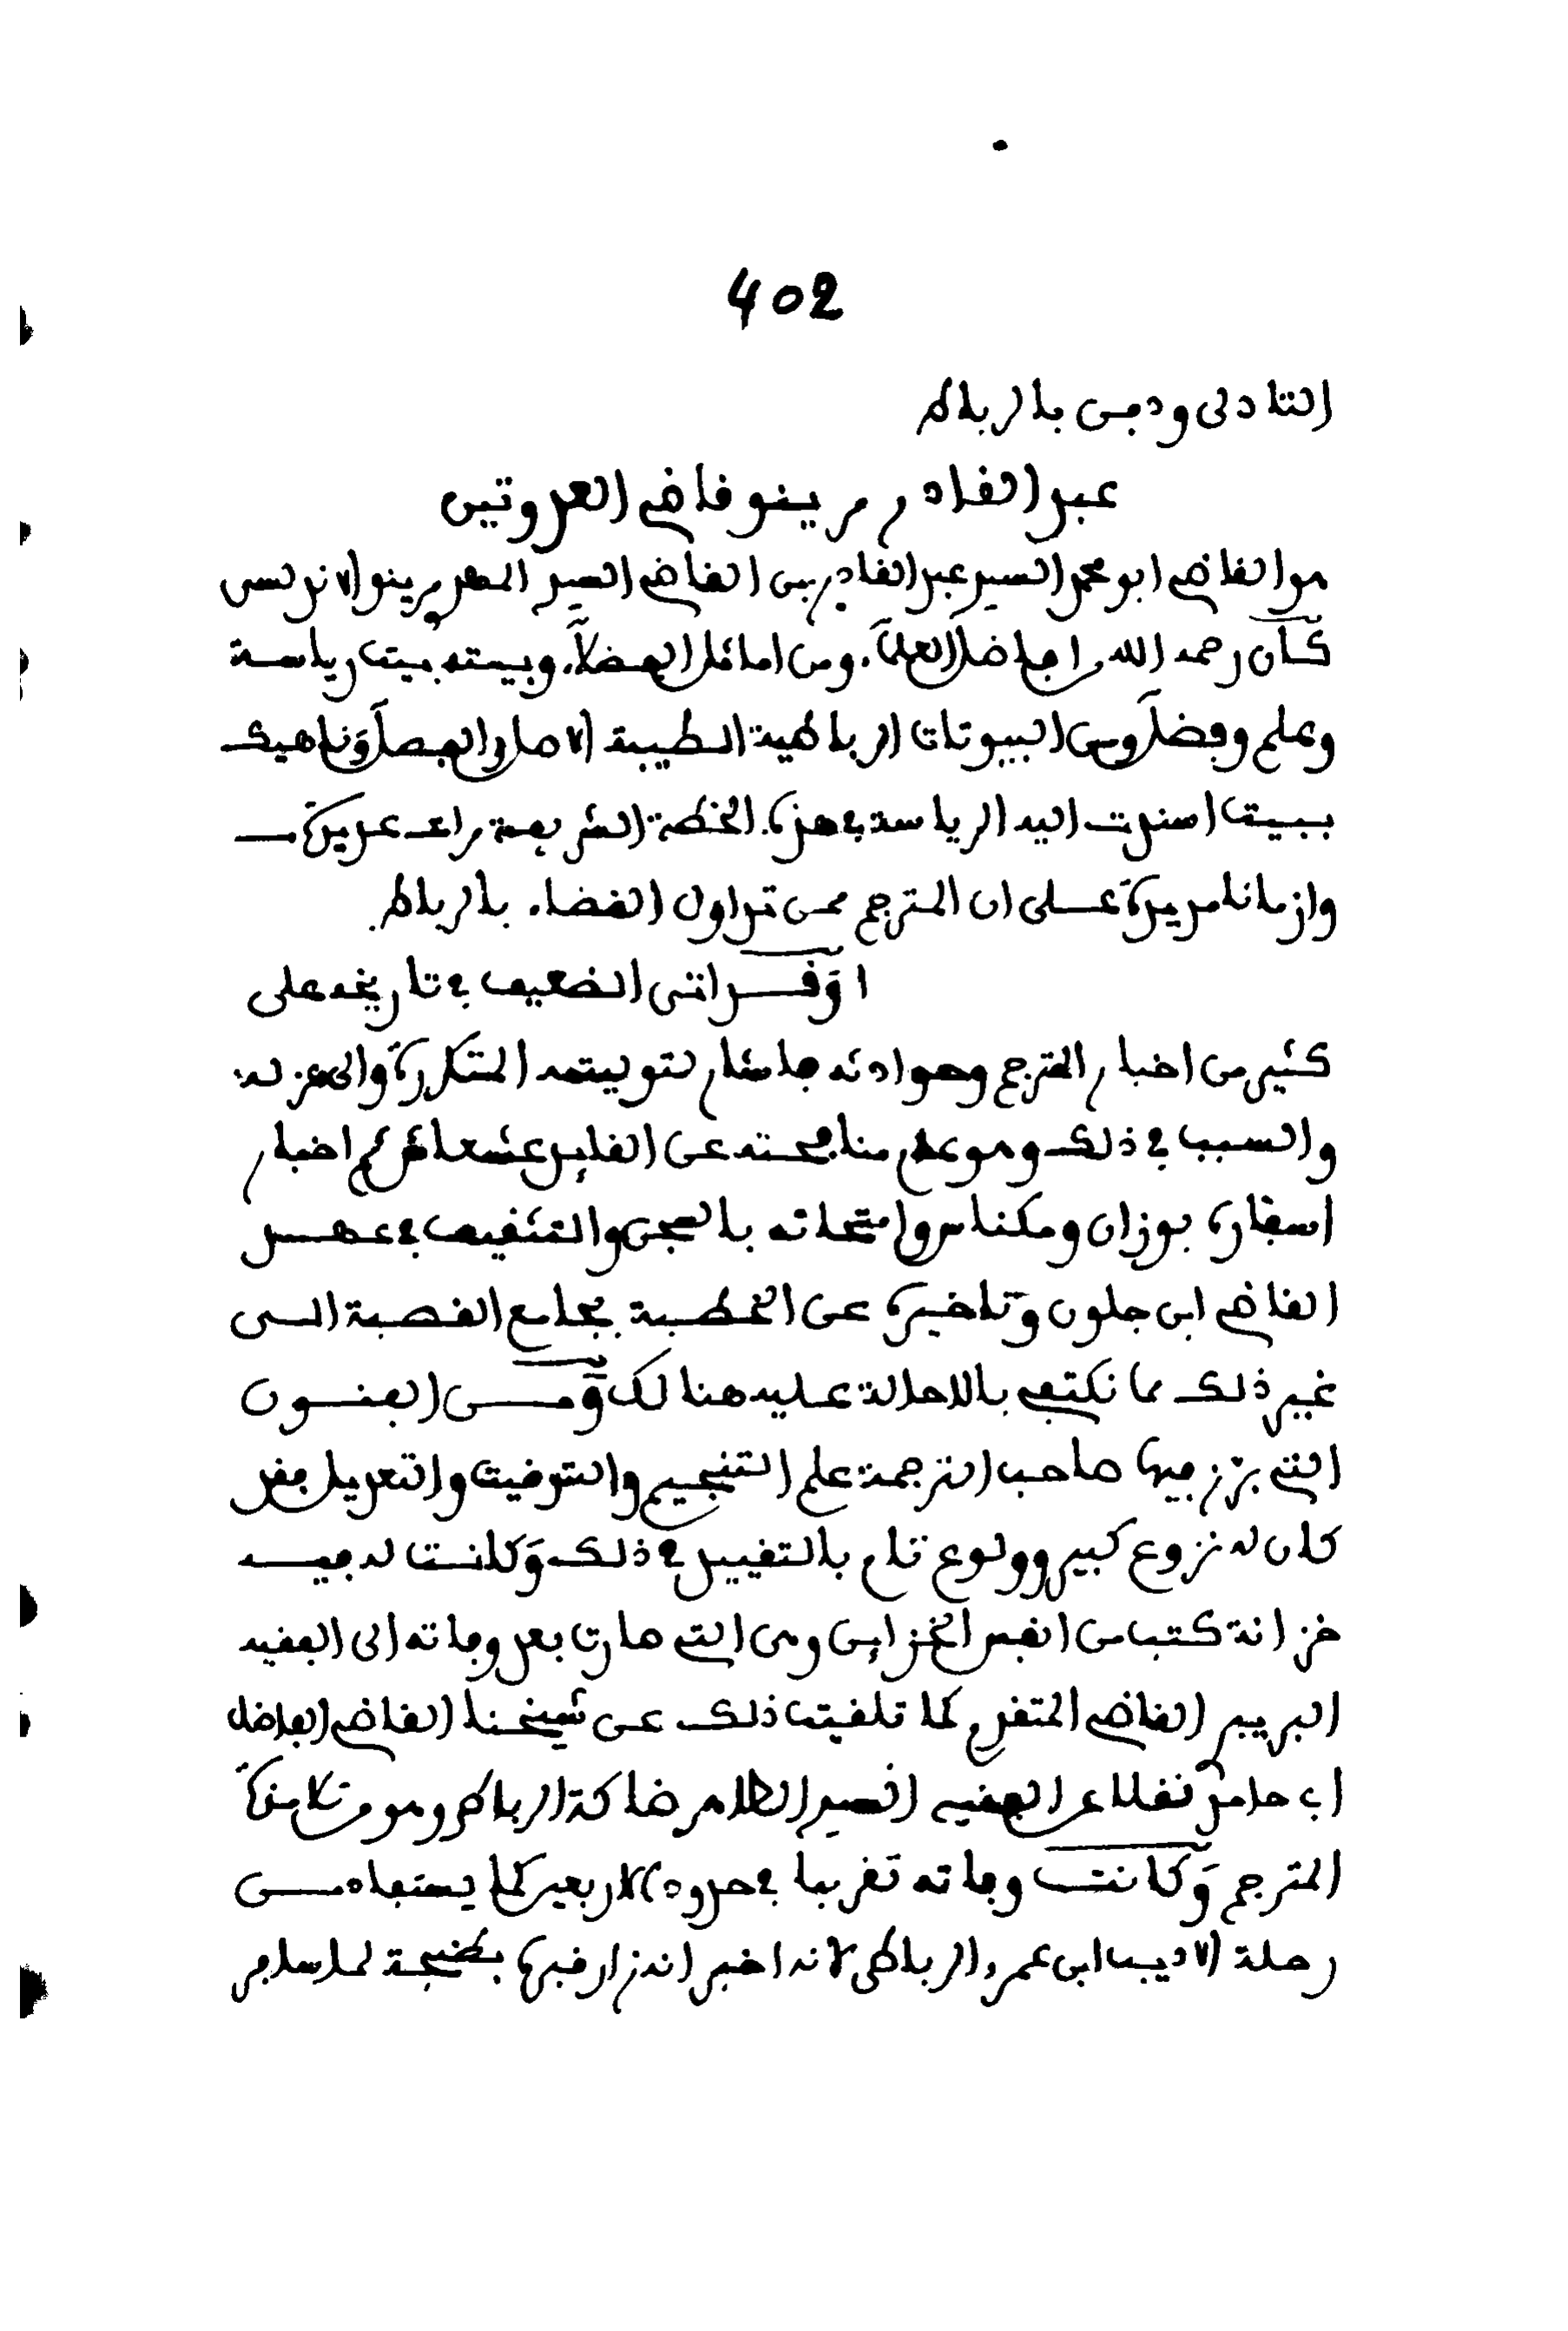 402
التادلى ودفن بالرباط
عبد القادر مرينو قاضى العدوتين
هو القاضى ابو محمد السيد عبد القادر بن القاضى السيد المهدى مرينو الاندلسى
كان رحمه الله من افاضل العلماء. ومن اماثل الفضلاء. وبيته بيت رياسة
وعلم وفضل ومن البيوتات الرباطية الطيبة الاصل والفصل وناهيك
ببيت اسندت اليه الرياسة فى هذه الخطة الشريفة مراعـ عديدة
وازمانا مديدة على ان المترجم ممن تداول القضاء بالرباط.
اوقد اتى الضعيف فى تاريخه على
كثير من اخبار المترجم وحوادثه فاشار لتوليته المتكررة والى عزله
والسبب فى ذلك وهو عدم منافحته عن القايد عشعاش ثم اخبار
اسفاره بوزان ومكناس وامتحانه بالسجن والتثقيف فى عهد
القاضى ابن جلون وتاخيره عن الخطبة بجامع القصبة الى
غير ذلك مما نكتفى بالاحالة عليه هنالك ومن الفنون
التى برز فيها صاحب الترجمة علم التنجيم والتوقيت والتعديل فقد
كان له نزوع كبير وولوع تام بالتقييد فى ذلك وكانت له فيه
خزانة كتب من انفس الخزاين وهى التى صارت بعد وفاته الى الفقيه
البريبر القاضى المتقدم كما تلقيت ذلك عن شيخنا القاضى الفاضل
ابى حامد نقلا عن الفقيه السيد الطاهر ضاكة الرباطى وهو من تلامذة
المترجم وكانت وفاته تقريبا فى حدود الاربعين كما يستفاد من
رحلة الاديب ابى عمرو الرباطى لانه اخبر انه زار قبره بطنجة لما سافر